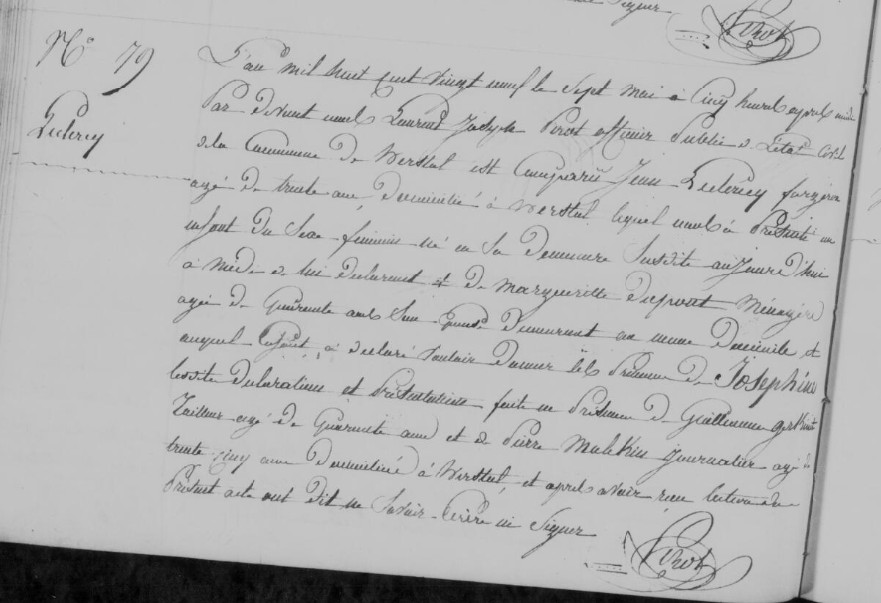 Signer
Pirot
N° 79
Leclercq
L'an mil huit cent vingt neuf le sept mai à cinq heures après midi
Par devant nous Laurent Joseph Pirot officier Public de l'état Civil
de la Commune de Werstal est comparu Jean Leclercq
agé de trente ans, domicilié à Werstal lequel nous a Présenté un
enfant du Sexe feminin né en Sa demeure Susdite aujourd'hui
à Midi de lui déclarant et de Marguerite Dupont Ménagère
agée de Quarante ans Son Epouse Demeurant au meme Domicile et
auquel Enfant a declaré vouloir donner les Prénoms de Josephine
Lesdite declaration et Présentation faite en Présence de Guillaume
Tailleur agé de Quarante ans et de Pierre Journalier agé de
trente cinq ans domicilié à Werstal, et après avoir reçu lecture du
Présent acte ont dit ne Savoir Ecrire ni Signer
Pirot